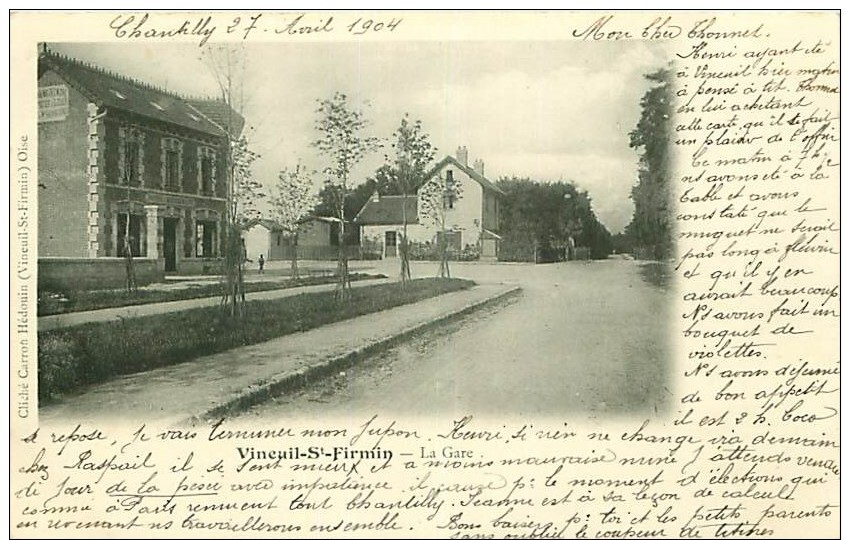 Chantilly 27 Avril 1904
Mon cher Thonnet.
Henri ayant été
à Vineuil hier matin
à pensé à tit. Thonnet
en lui achetant
cette carte qu'il se fait
un plaisir de t'offrir
Ce matin à 7 h.
ns avons été à la
Table et avons
constaté que le
muguet ne serait
pas long à fleurir
et qu'il y en
aurait beaucoup
Ns avons fait un
bouquet de
violettes.
Ns avons déjeuné
de bon appétit
il est 2 h. Coco
se repose, je vais terminer mon Jupon. Henri, si rien ne change ira demain
Vineuil-St-Firmin — La Gare
chez Raspail il se sent mieux et a moins mauvaise mine j'attends vendredi
jour de la pesée avec impatience il cause pr le moment d'élections qui
comme à Paris remuent tout Chantilly. Jeanne est à sa leçon de calcul
en revenant ns travaillerons ensemble. Bons baisers pr toi et les petits parents
sans oublier le coupeur de
Cliché Carron Hédouin (Vineuil-St-Firmin) Oise